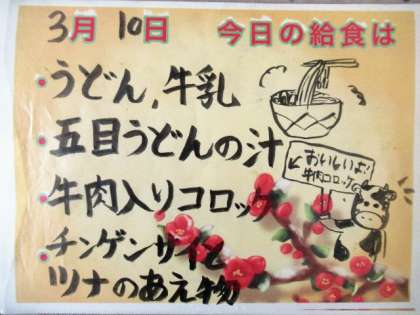 3月 10日 今日の給食は
・うどん、牛乳
・五目うどんの汁
・牛肉入りコロッケ
・チンゲンサイと
ツナのあえ物
おいしいよ!
牛肉コロッケ